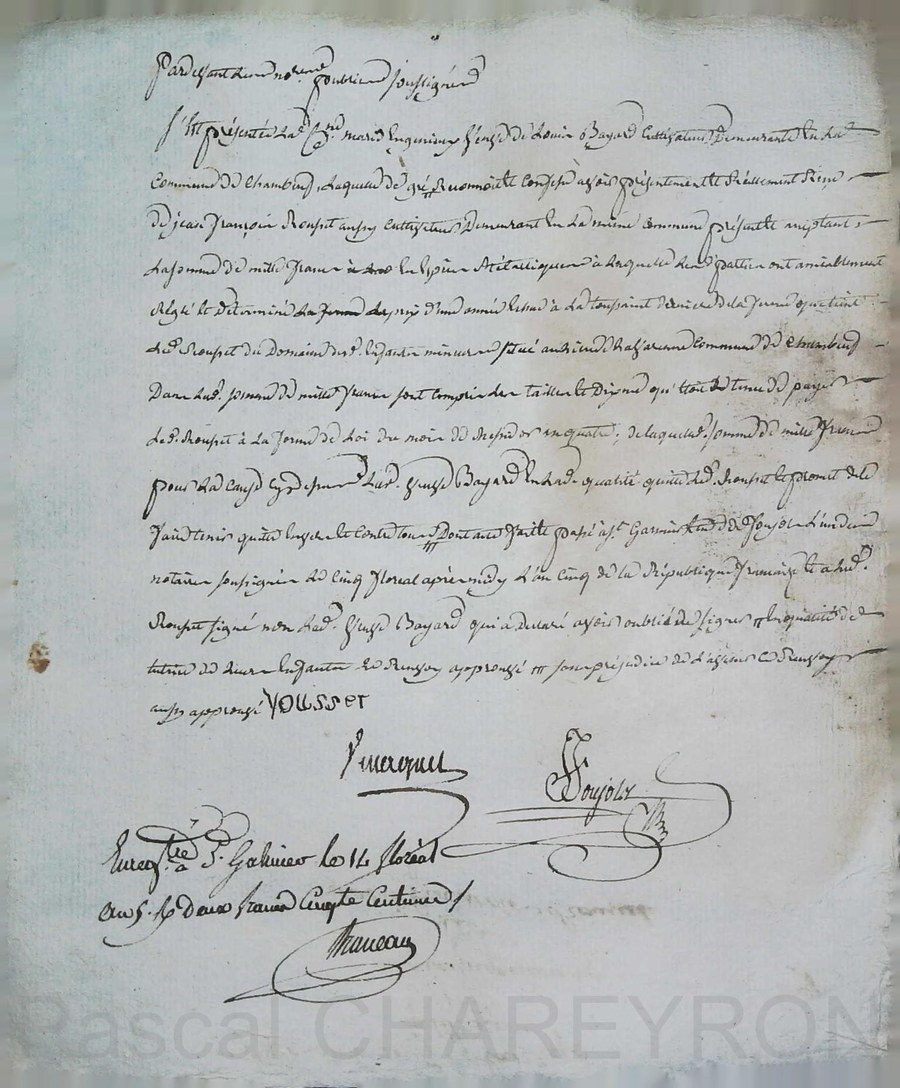 Pardevant les no.res publics soussignés
S'est présentée la c.ne marie Ingenieux veuve de Louis Bayard Cultivateur Demeurante en la
Commune de Chambeuf, Laquelle de gré Reconnoit et Confesse avoir présentement et Réellement Reçu
de jean françois Rousset aussy Cultivateur Demeurant en La même Commune présent et aceptant,
La somme de mille francs en Espèces Métalliques à laquelle les parties ont amiablement
Réglé et Determiné Le prix d'une année echue à La toussaint derniere de la ferme que tient
Led. Rousset du Domaine desd. Enfants mineurs situé au lieu de commune de Chambeuf
Dans Lad. somme de mille francs sont Compris les tailles et Dixme qu'étoit tenu de payer
Led. Rousset à La forme de Loi du mois de Messidor an quatre, de laquelle somme de mille francs
pour La Cause cy dessus Lad. veuve Bayard en Lad. qualité quitte led. Rousset et promet de le
faire tenir quitte Envers et Contre tous Dont acte fait et passé a s.t Galmier Etude de Poujols L'un des
notaires soussignés Le Cinq floreal après midy L'an Cinq de la République française et a Led.
Rousset signé non Lad. veuve Bayard qui a declaré avoir oublié de signer // En qualité de
tutrice de leurs Enfants Le Renvoy approuvé /// sans préjudice de L'avenir Ce Renvoy
aussy approuvé Rousset
Poujols
Enreg.tré à S.t Galmier le 14 floréal
an 5. Rç deux francs Cinq.te Centimes
Pascal CHAREYRON